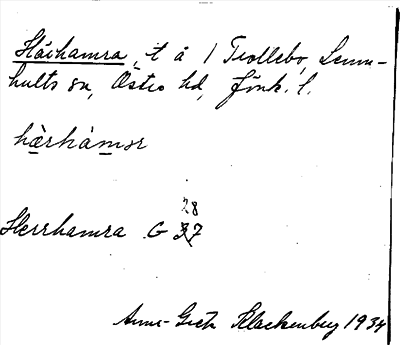 Härhamra, t å 1 Trollebo, Lemn-
hults sn, Östra hd, Jönk. l.
hàrhámər
28
Herrhamra G 37
Anna-Greta Klackenberg 1934